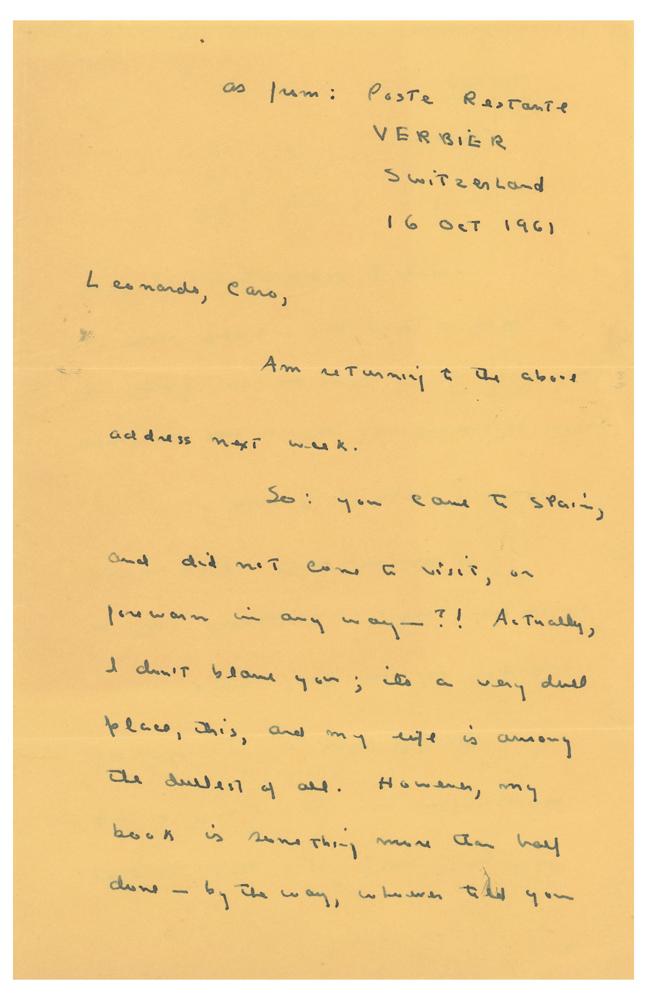 as from: Poste Restante
VERBIER
Switzerland
16 Oct 1961
Leonardo, Caro,
Am returning to the above
address next week.
So: you came to Spain,
and did not come to visit, or
forewarn in any way—?! Actually,
I don't blame you; its a very dull
place, this, and my life is among
the dullest of all. However, my
book is something more than half
done — by the way, whoever told you